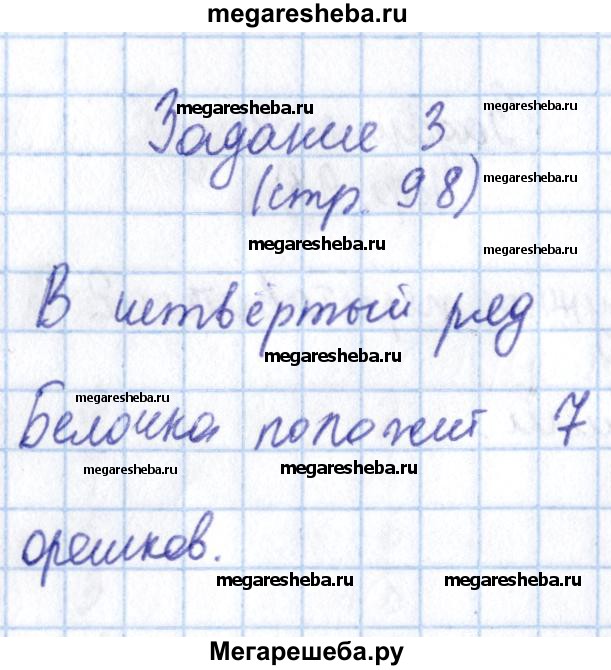 megaresheba.ru
megaresheba.ru megaresheba.ru
Задание 3
megaresheba.ru
(стр. 98)
megaresheba.ru megaresheba.ru
В четвёртый ряд
megaresheba.ru
megaresheba.ru
Белочка положит 7
megaresheba.ru megaresheba.ru
орешков.
megaresheba.ru megaresheba.ru
Мегарешеба.ру